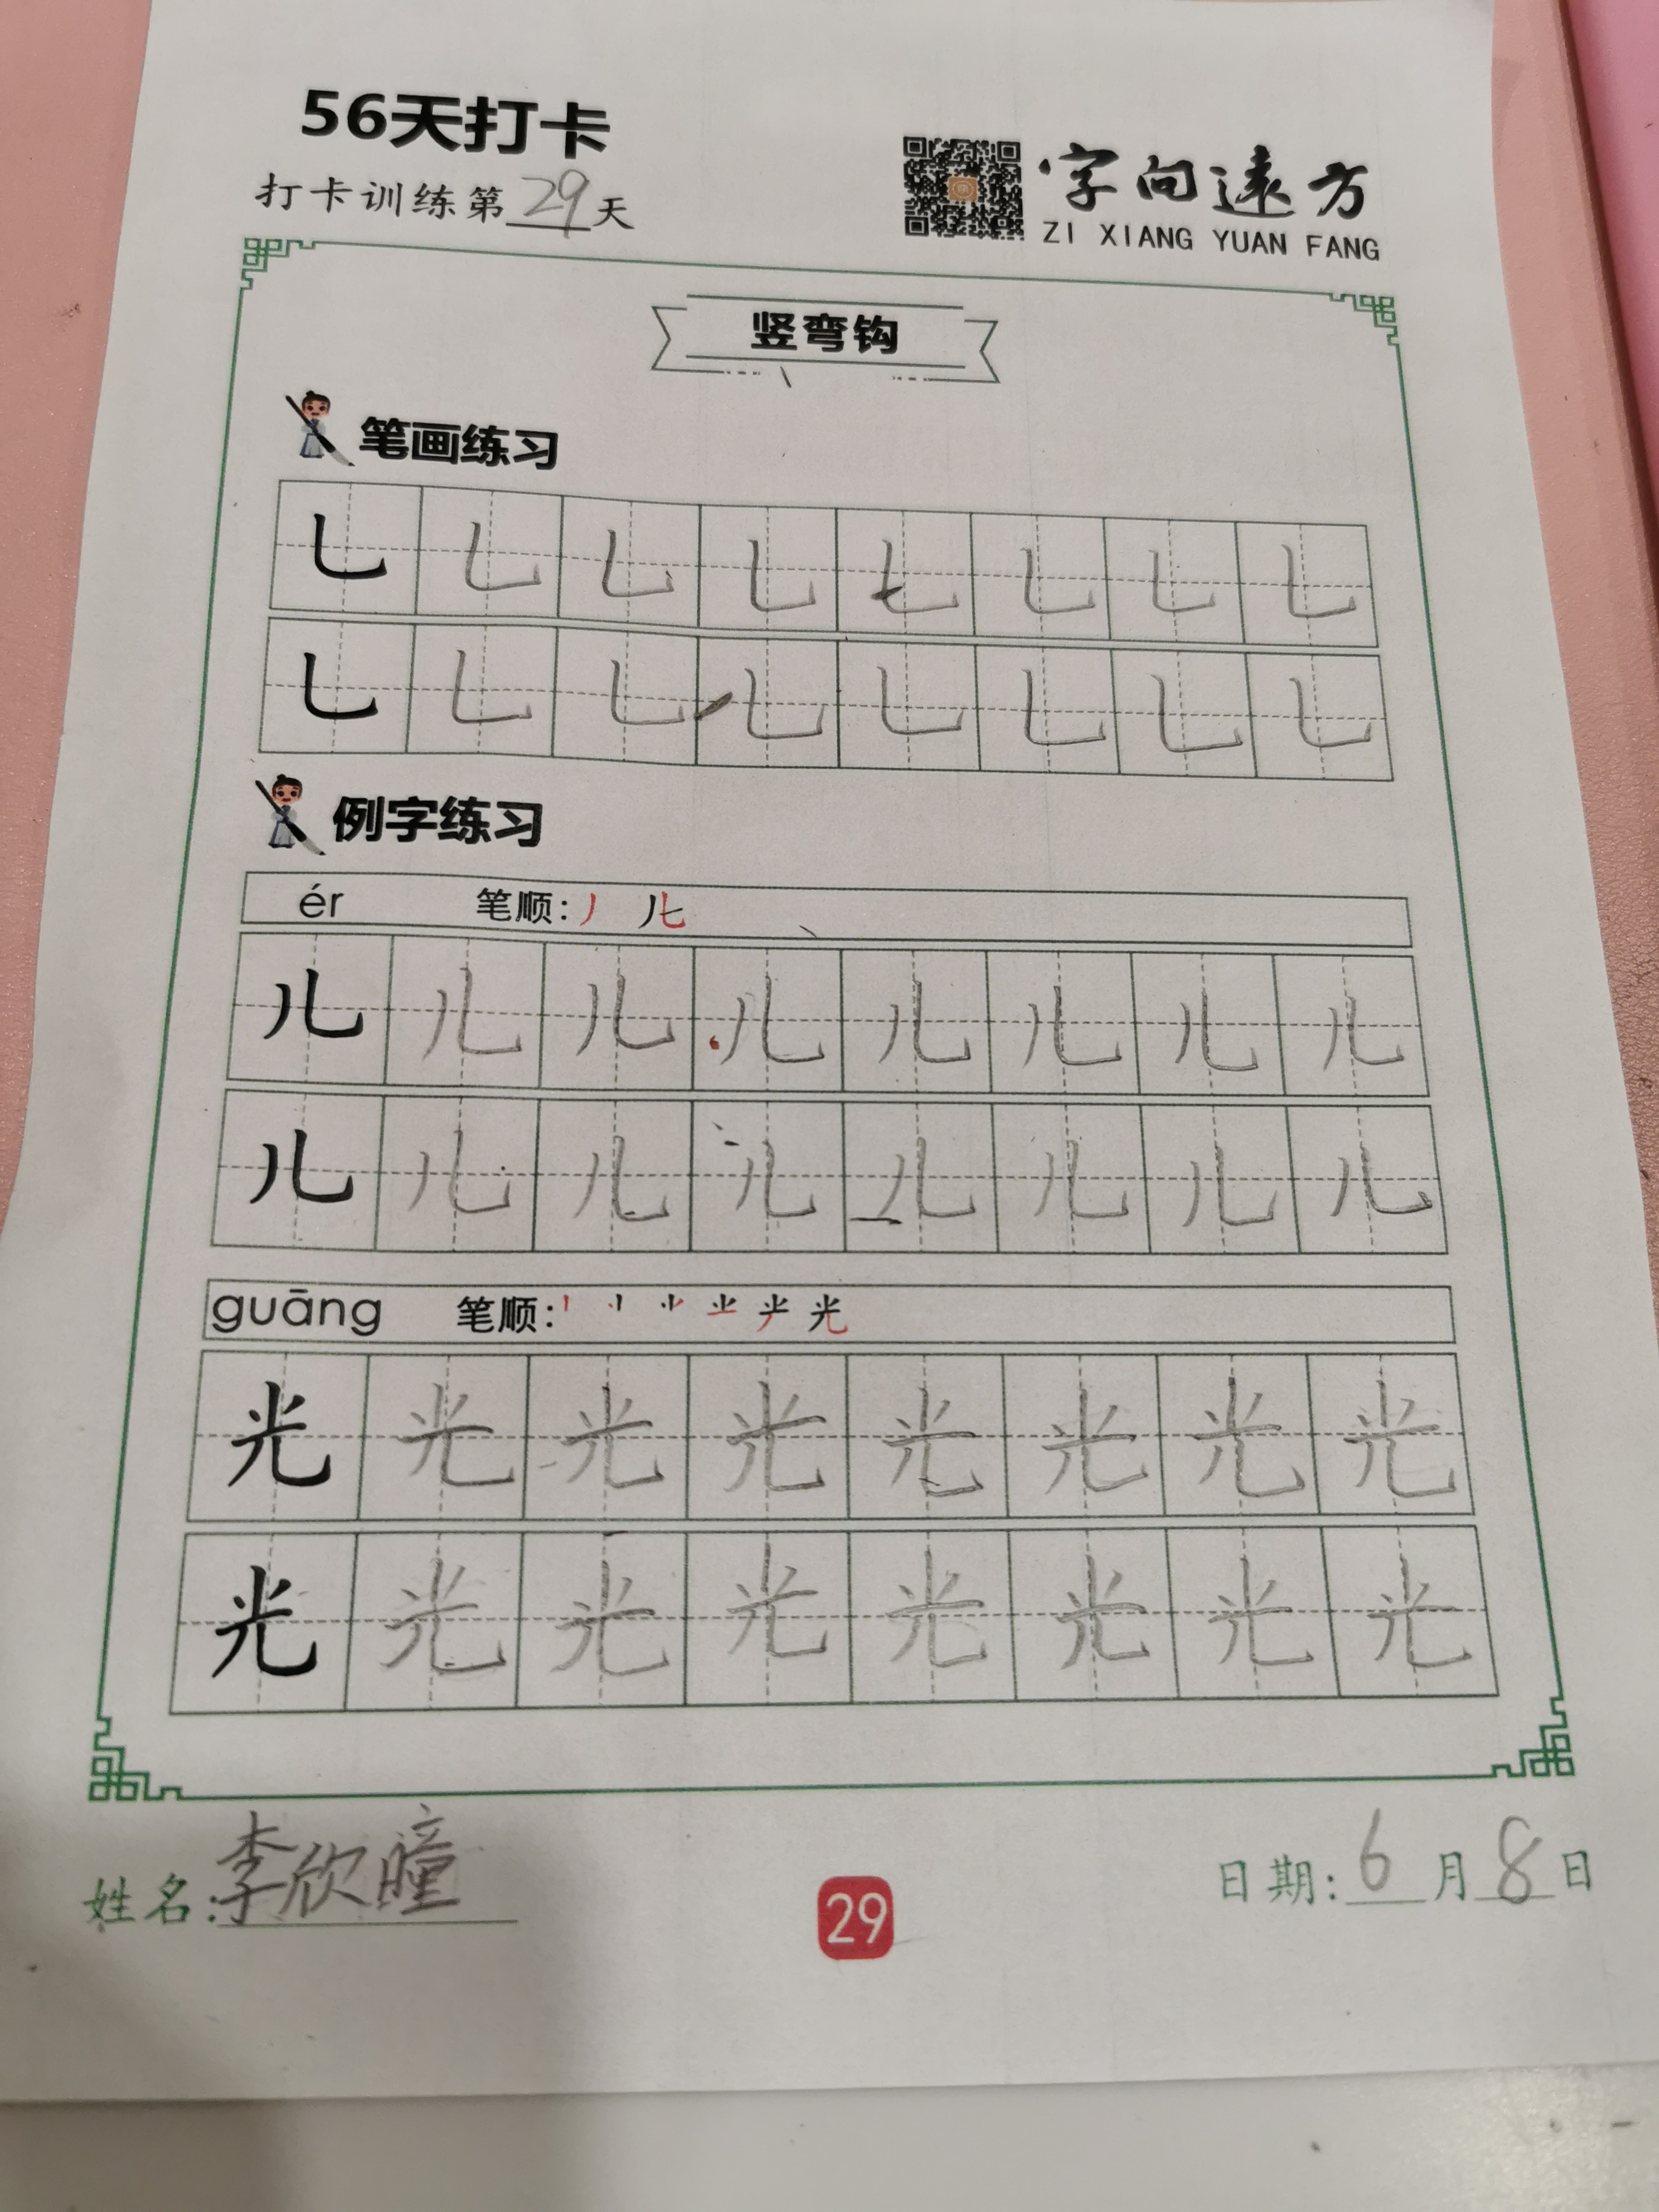 56天打卡
打卡训练第29天
字向遠方
ZI XIANG YUAN FANG
竖弯钩
笔画练习
乚 乚 乚 乚 乚 乚 乚 乚
乚 乚 乚 乚 乚 乚 乚 乚
例字练习
ér 笔顺: 丿 儿
儿 儿 儿 儿 儿 儿 儿 儿
儿 儿 儿 儿 儿 儿 儿 儿
guāng 笔顺: 光
光 光 光 光 光 光 光 光
光 光 光 光 光 光 光 光
姓名:李欣瞳
29
日期:6月8日